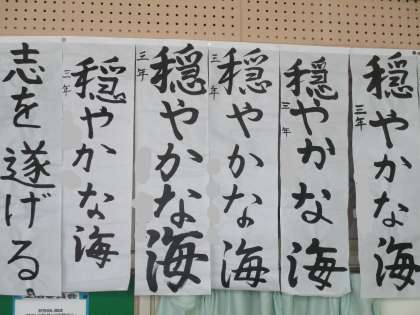 穏やかな海
三年
穏やかな海
三年
穏やかな海
三年
穏やかな海
三年
穏やかな海
三年
志を遂げる